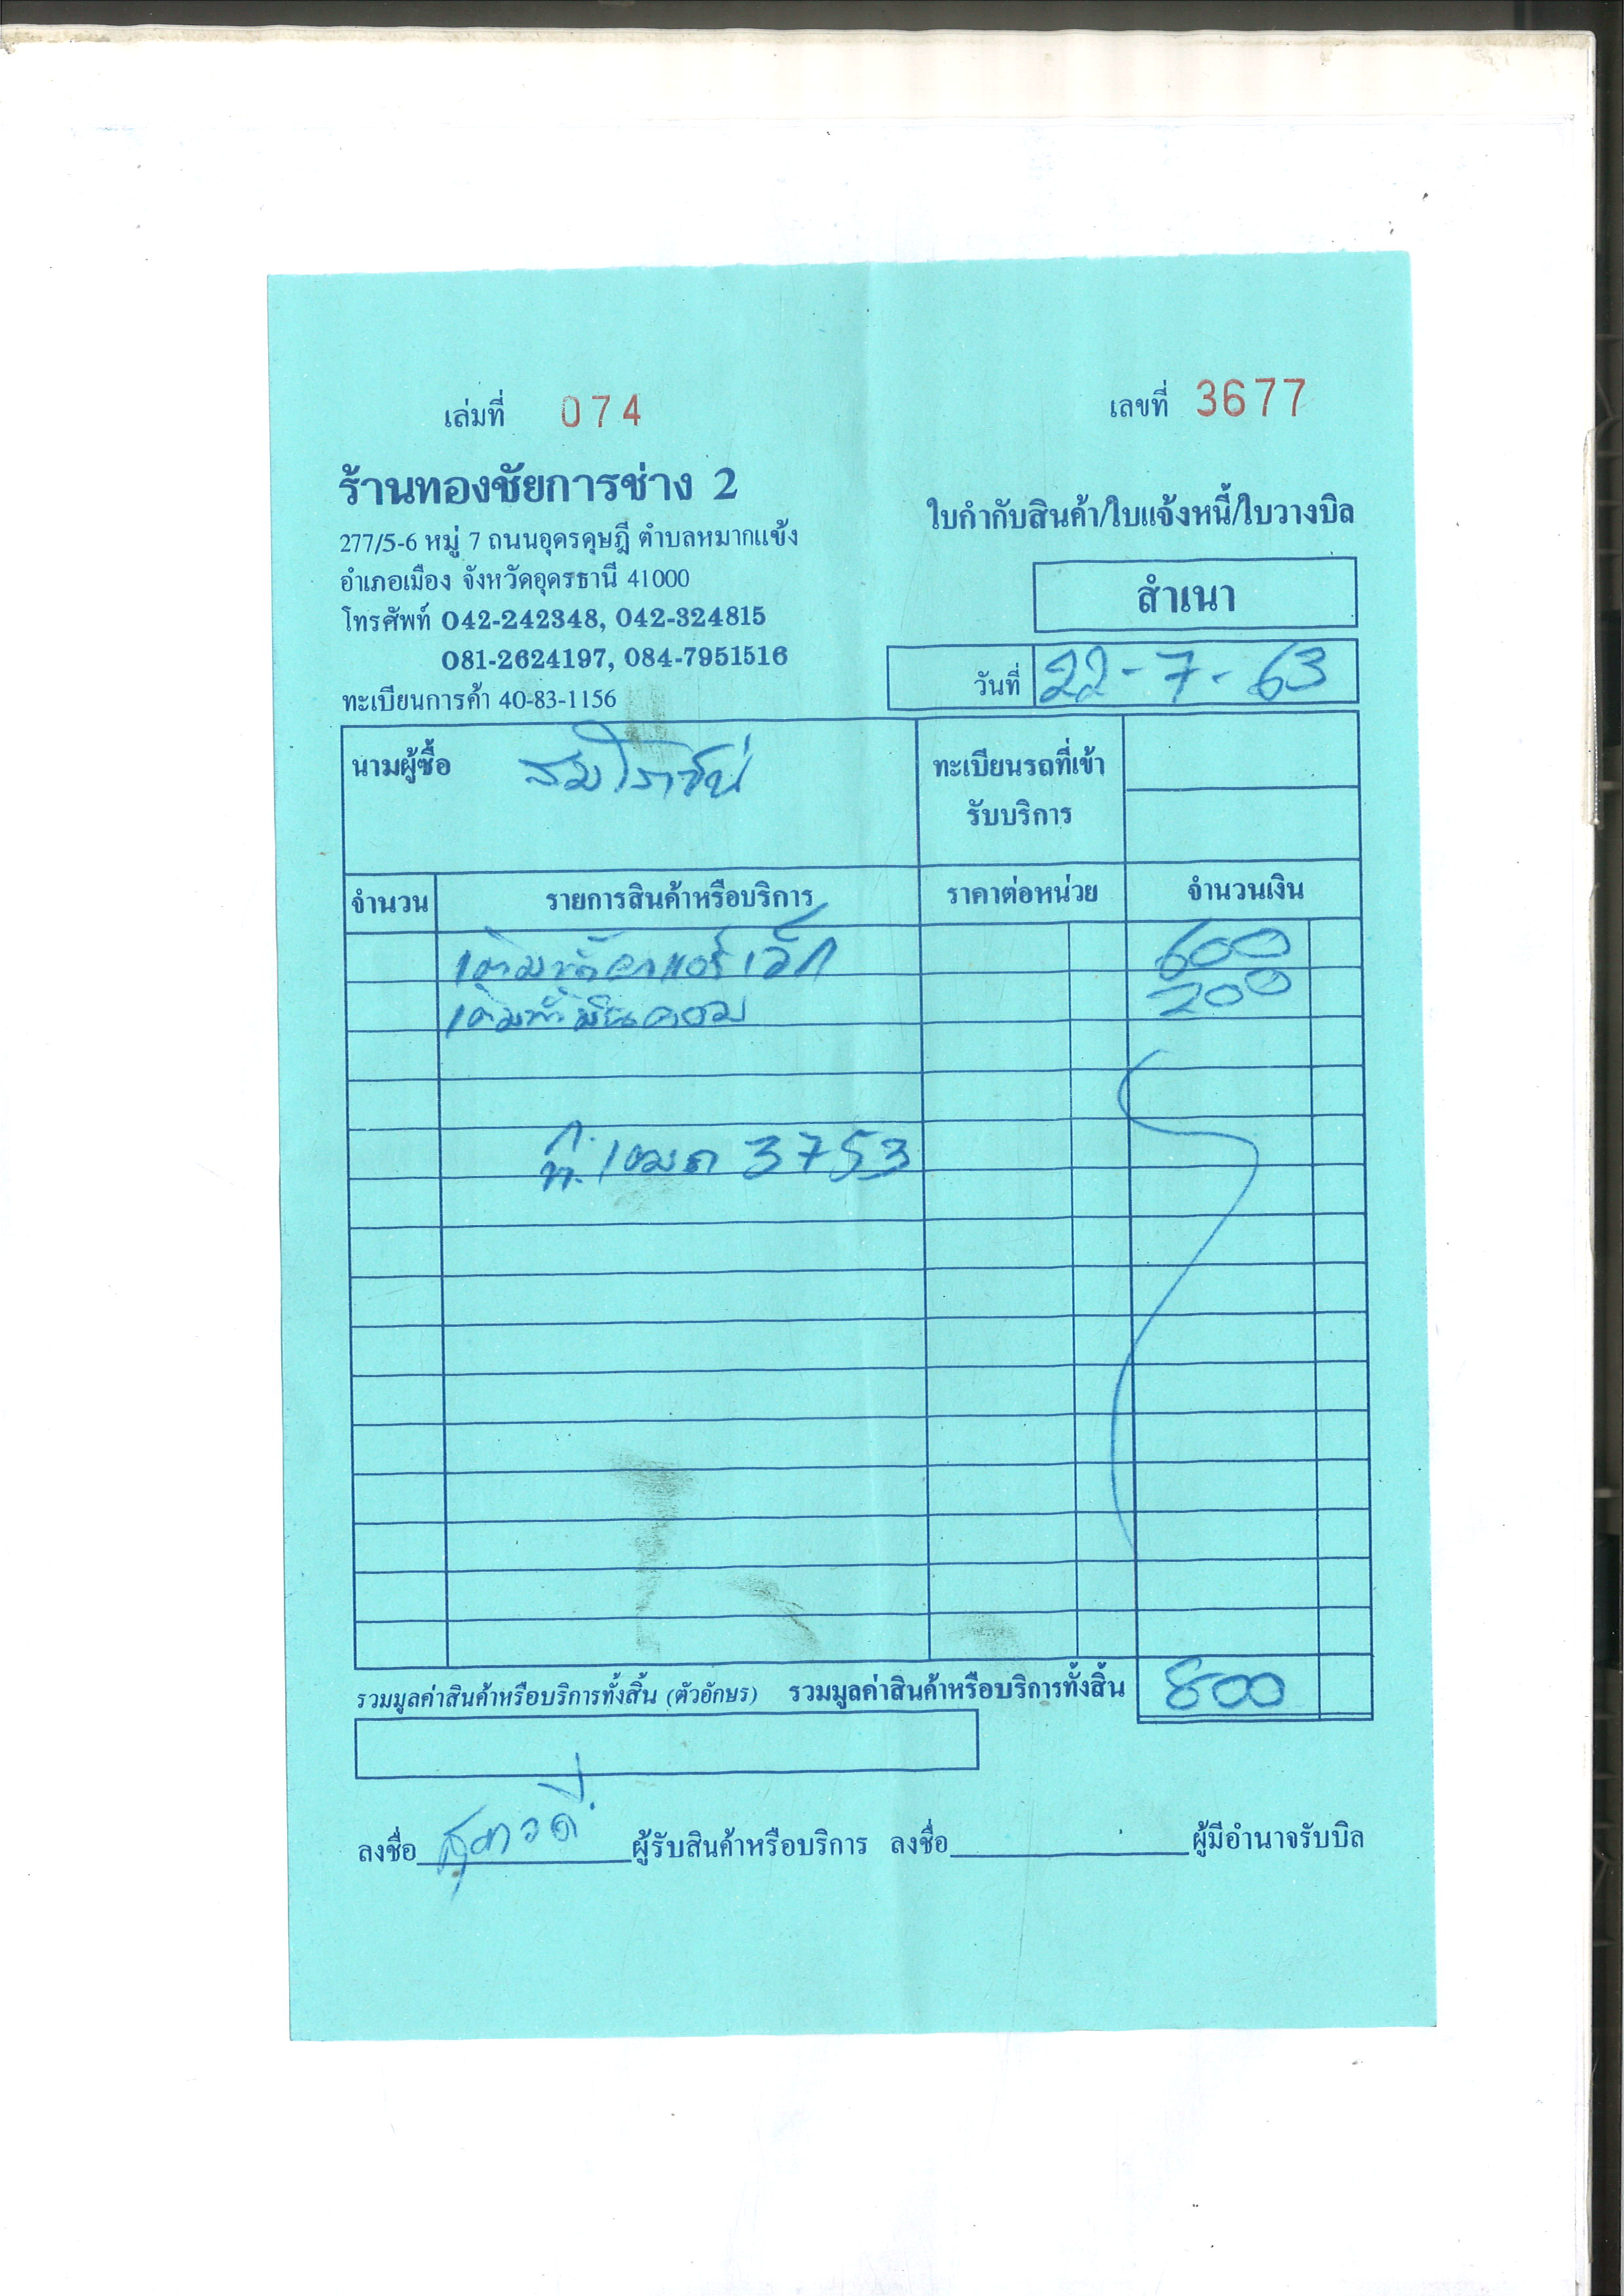 เล่มที่ 074
เลขที่ 3677
ร้านทองชัยการช่าง 2
ใบกำกับสินค้า/ใบแจ้งหนี้/ใบวางบิล
277/5-6 หมู่ 7 ถนนอุดรดุษฎี ตำบลหมากแข้ง
อำเภอเมือง จังหวัดอุดรธานี 41000
สำเนา
โทรศัพท์ 042-242348, 042-324815
081-2624197, 084-7951516
วันที่ 22-7-63
ทะเบียนการค้า 40-83-1156
นามผู้ซื้อ
ทะเบียนรถที่เข้า
รับบริการ
จำนวน รายการสินค้าหรือบริการ ราคาต่อหน่วย จำนวนเงิน
600
200
3753
รวมมูลค่าสินค้าหรือบริการทั้งสิ้น (ตัวอักษร) รวมมูลค่าสินค้าหรือบริการทั้งสิ้น 800
ลงชื่อ ผู้รับสินค้าหรือบริการ ลงชื่อ ผู้มีอำนาจรับบิล